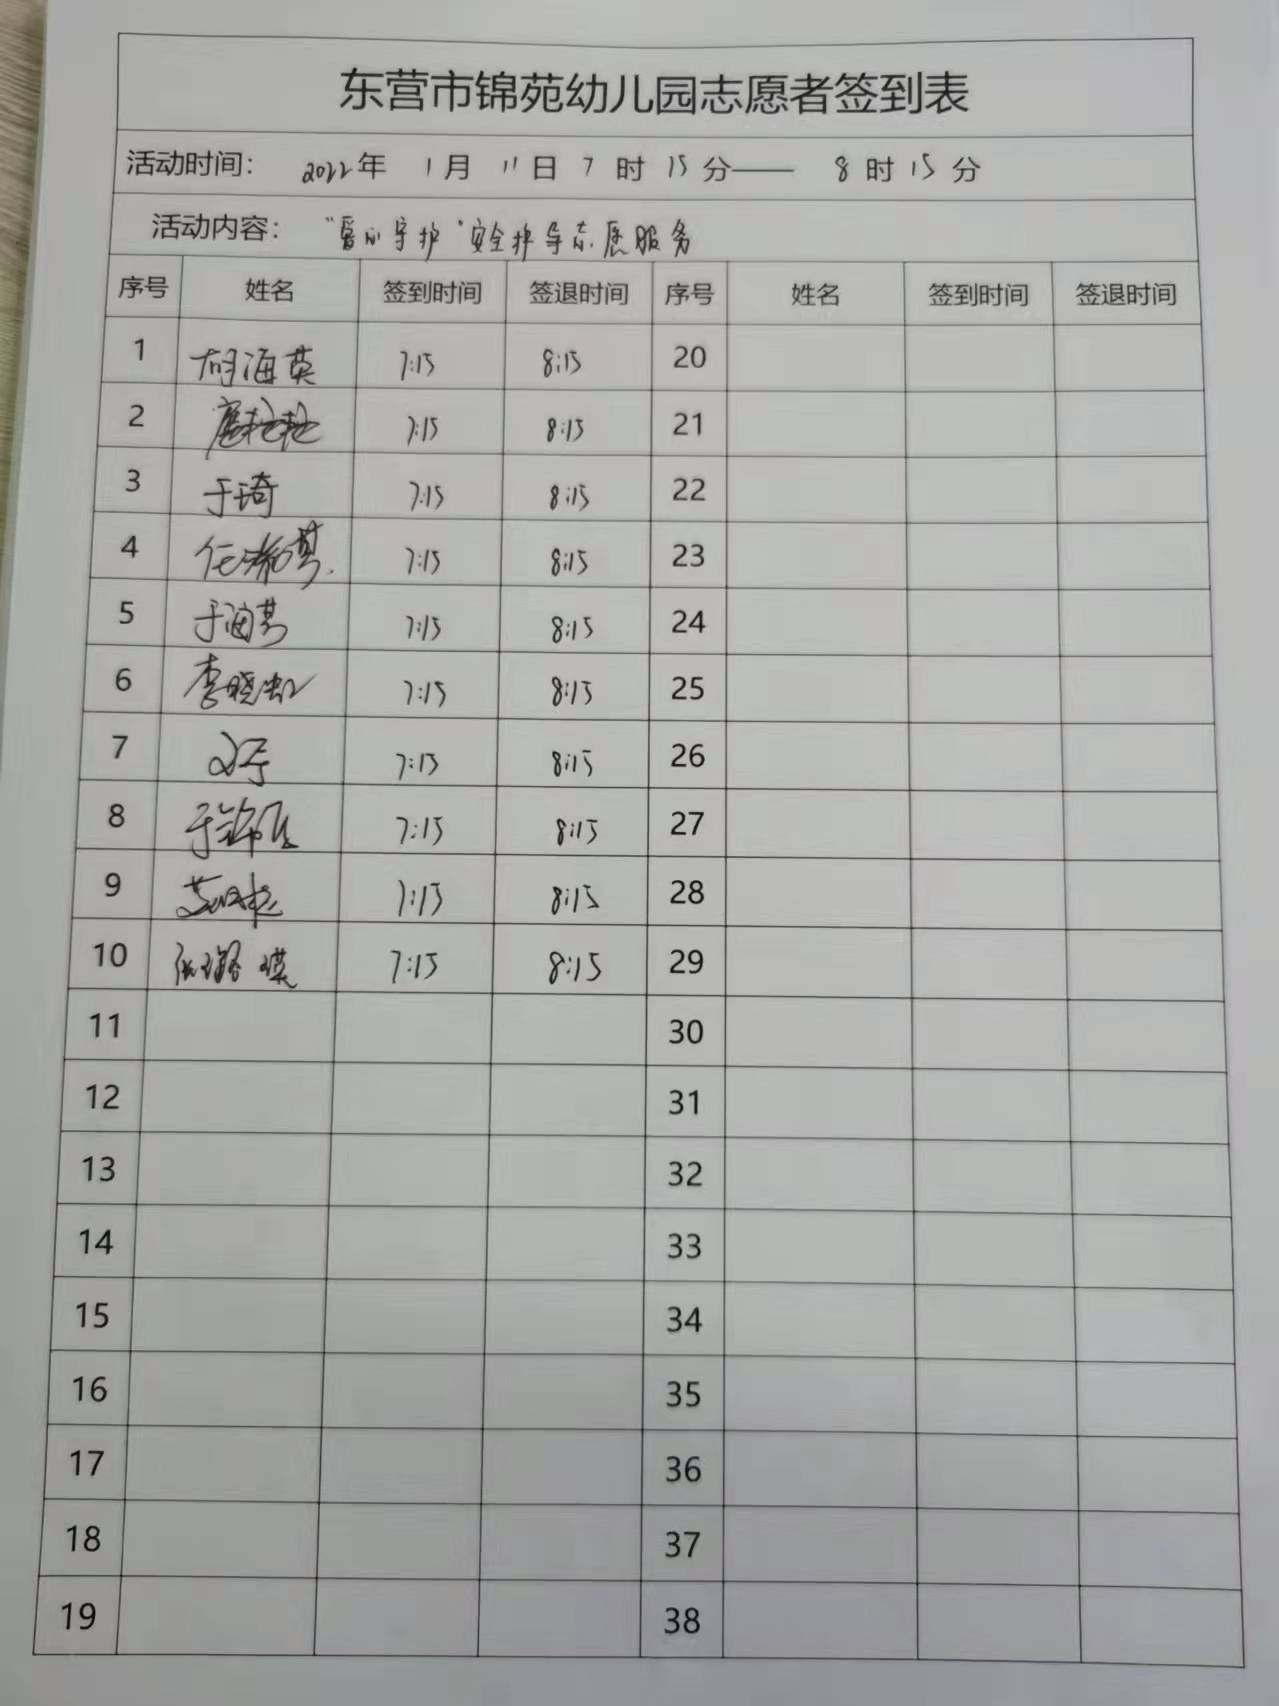 东营市锦苑幼儿园志愿者签到表
活动时间： 2022年 1月 11日 7时 15分—— 8时 15分
活动内容： 守护"安全护导志愿服务
序号 姓名 签到时间 签退时间 序号 姓名 签到时间 签退时间
1 胡海英 7:15 8:15 20
2 7:15 8:15 21
3 于琦 7:15 8:15 22
4 任 7:15 8:15 23
5 于海 7:15 8:15 24
6 李晓虹 7:15 8:15 25
7 7:15 8:15 26
8 于锦 7:15 8:15 27
9 7:15 8:15 28
10 张璐琪 7:15 8:15 29
11 30
12 31
13 32
14 33
15 34
16 35
17 36
18 37
19 38